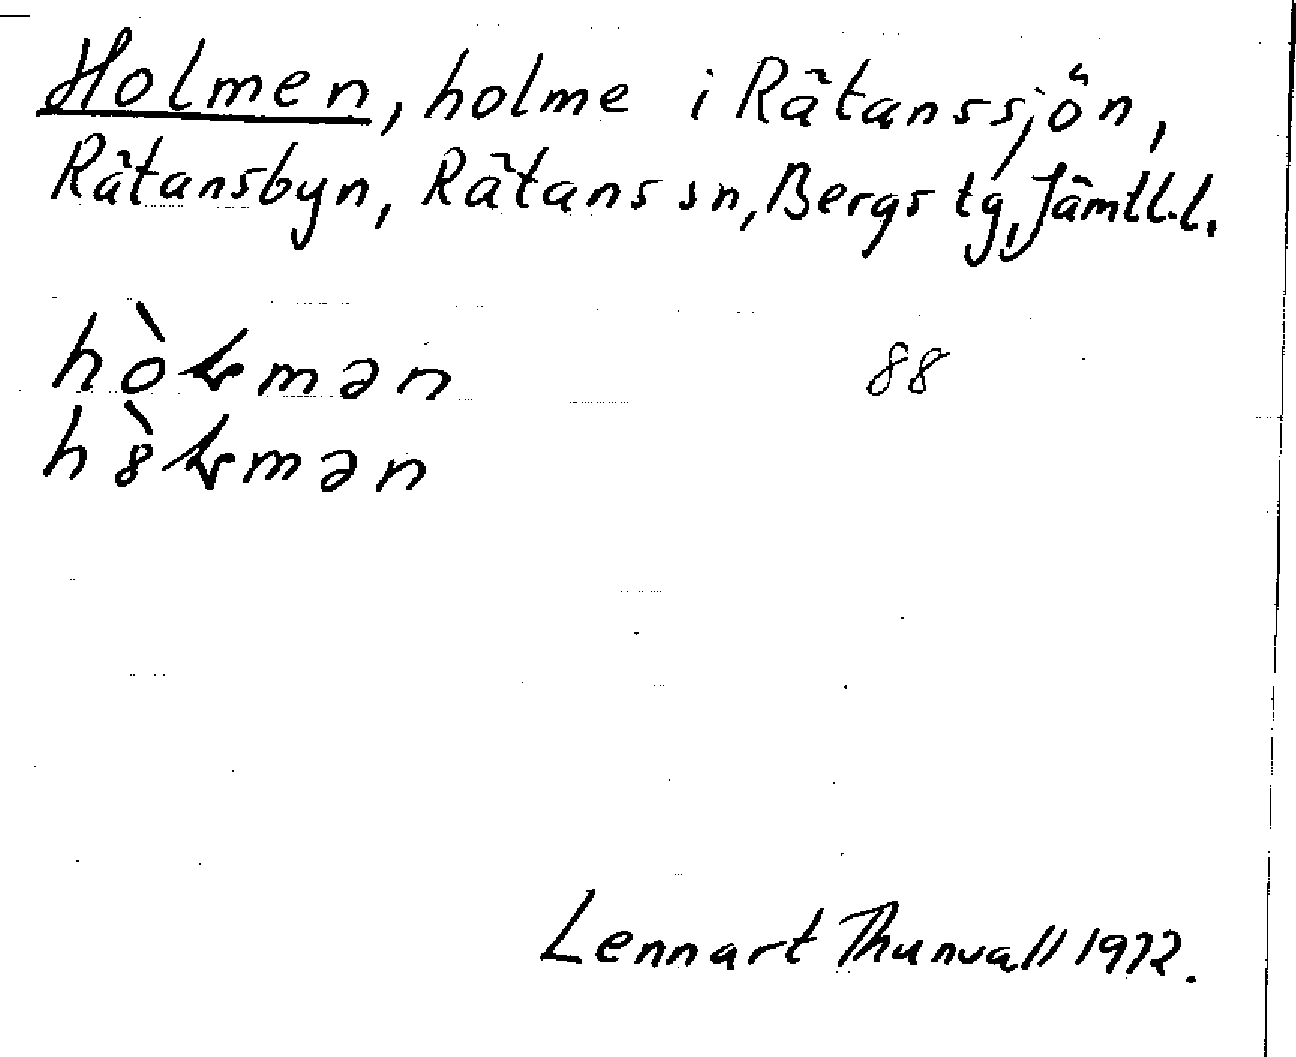 Holmen, holme i Rätanssjön,
Rätansbyn, Rätans sn, Bergs tg, Jämtl.l.
hòɬmən 88
h8̀ɬmən
Lennart Thunvall 1972.